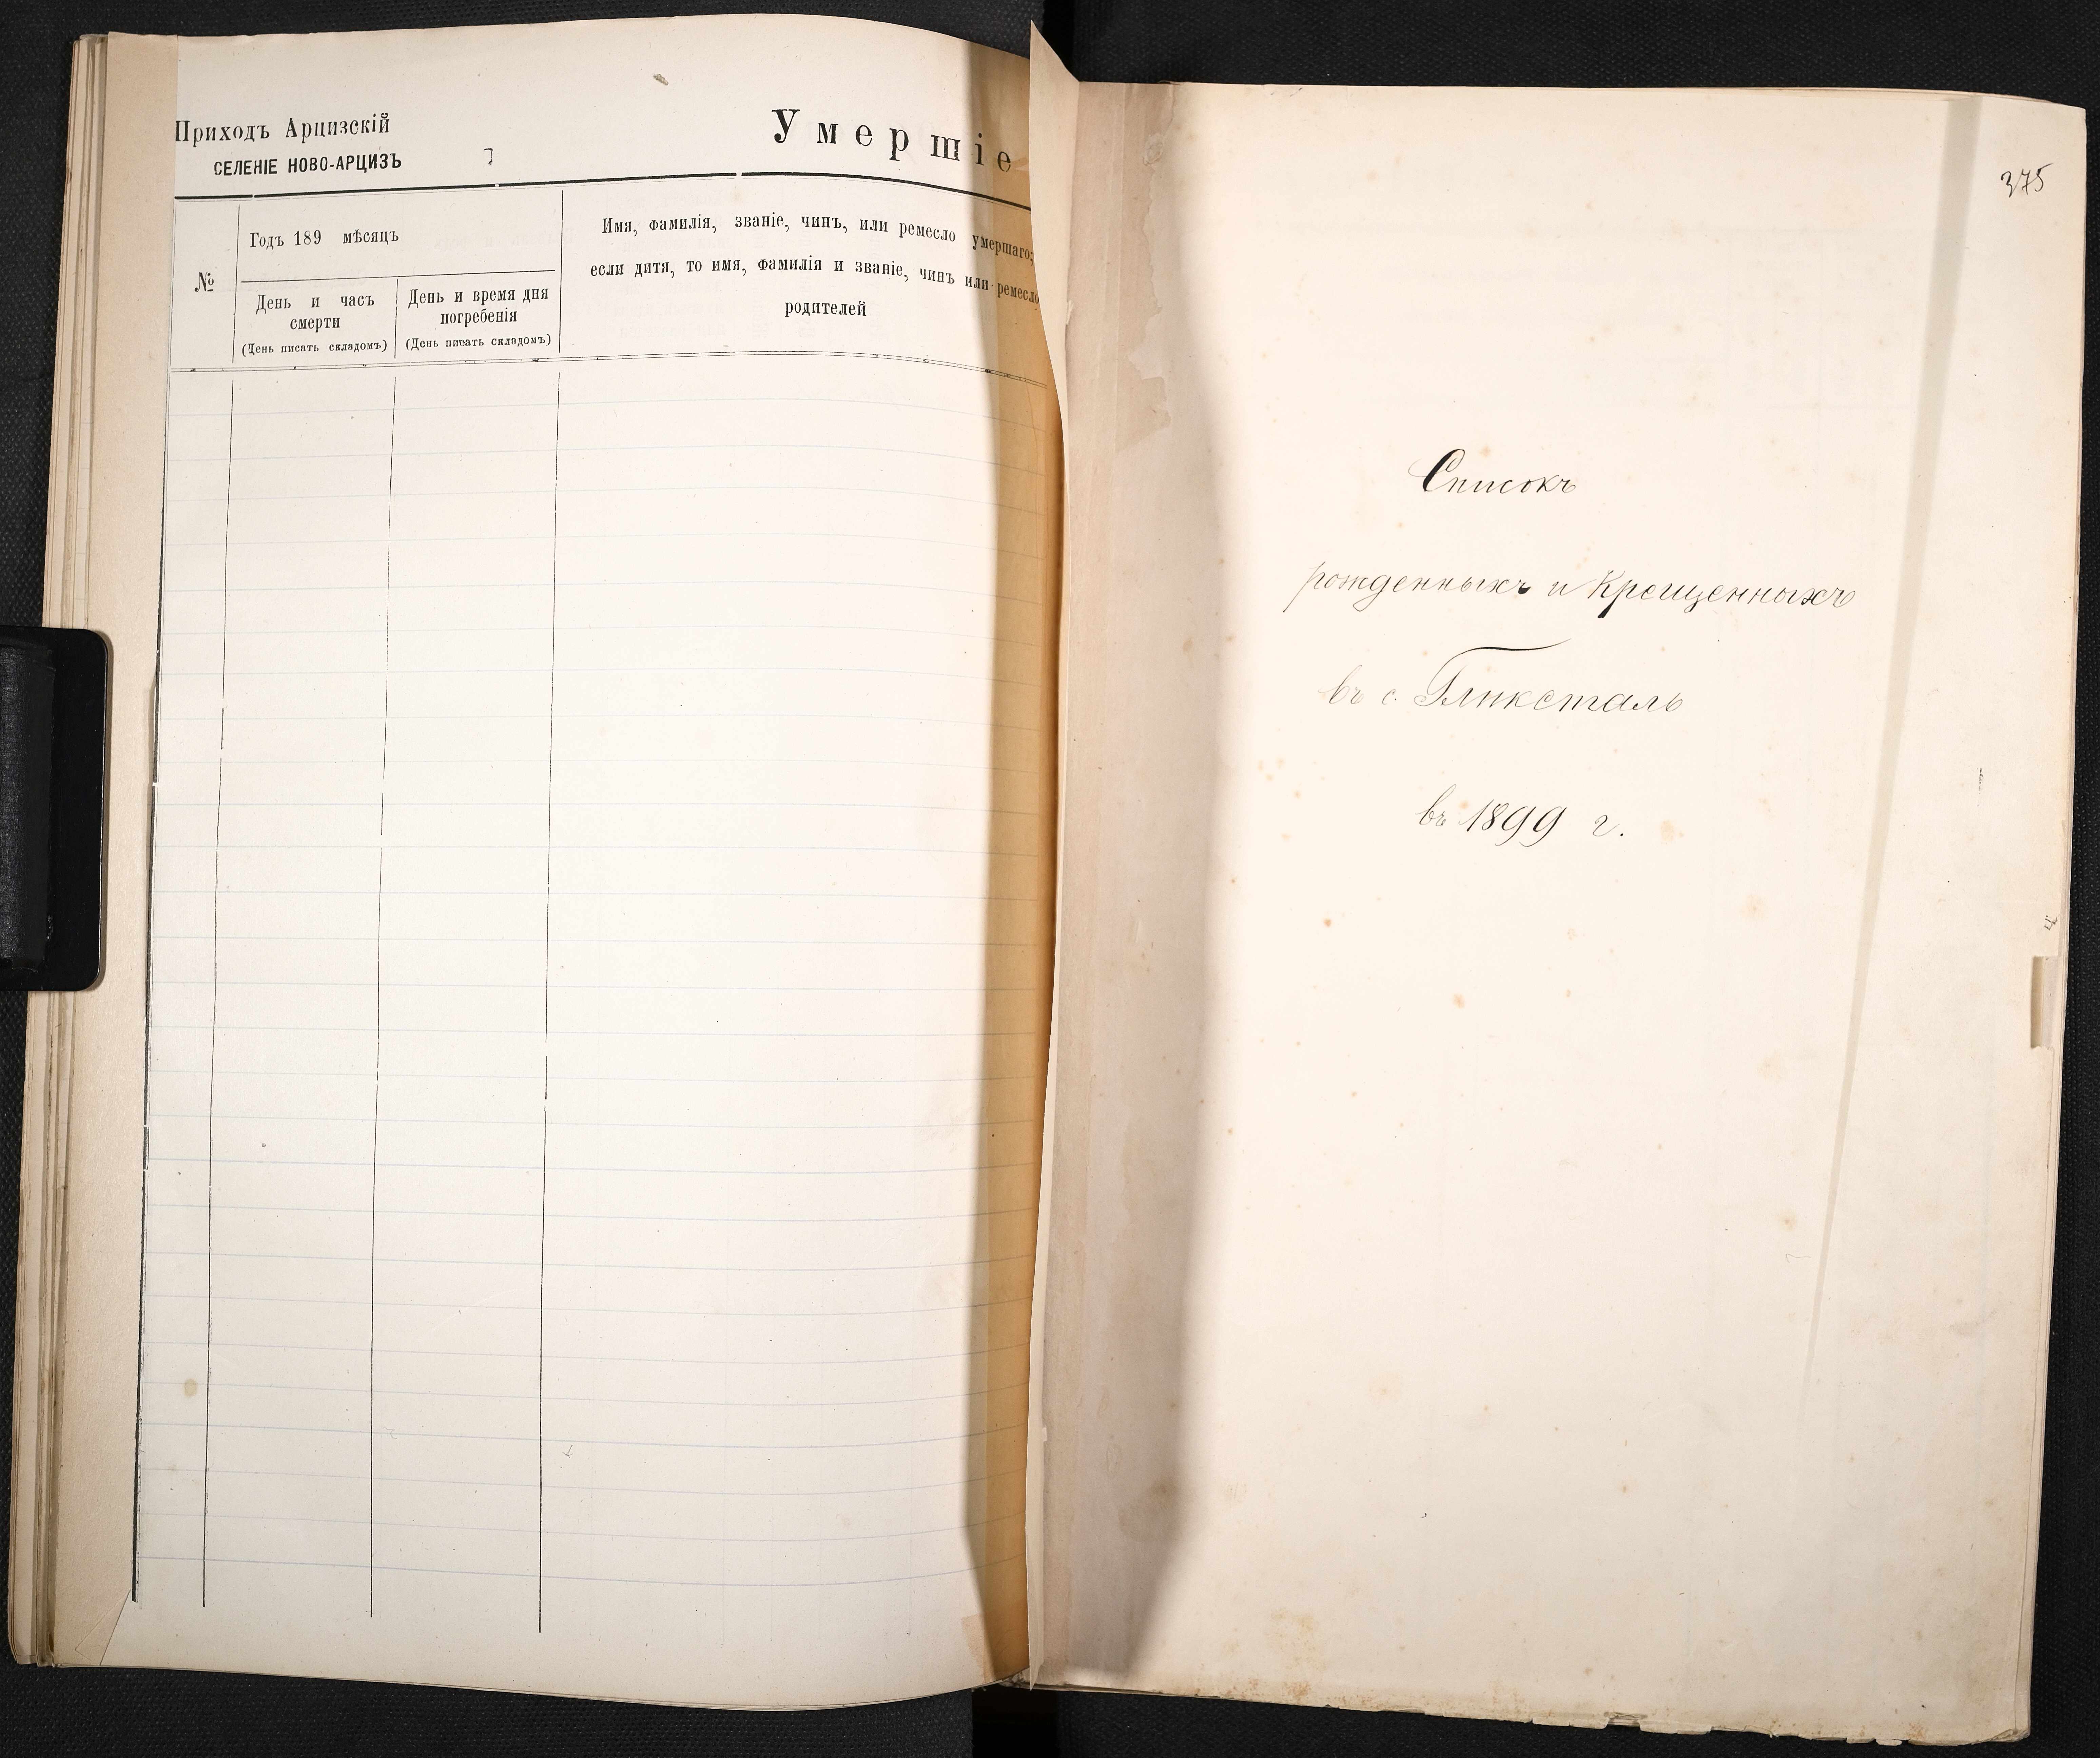 Приходъ Арцизскій
СЕЛЕНІЕ НОВО-АРЦИЗЪ
Умершіе
№
Годъ 189 мѣсяцъ
День и часъ
смерти
(День писать складомъ)
День и время дня
погребенія
(День писать складомъ)
Имя, фамилія, званіе, чинъ, или ремесло умершаго;
если дитя, то имя, фамилія и званіе, чинъ или ремесло
родителей
375
Списокъ
рожденныхъ и Крещенныхъ
въ с. Глюксталь
въ 1899 г.